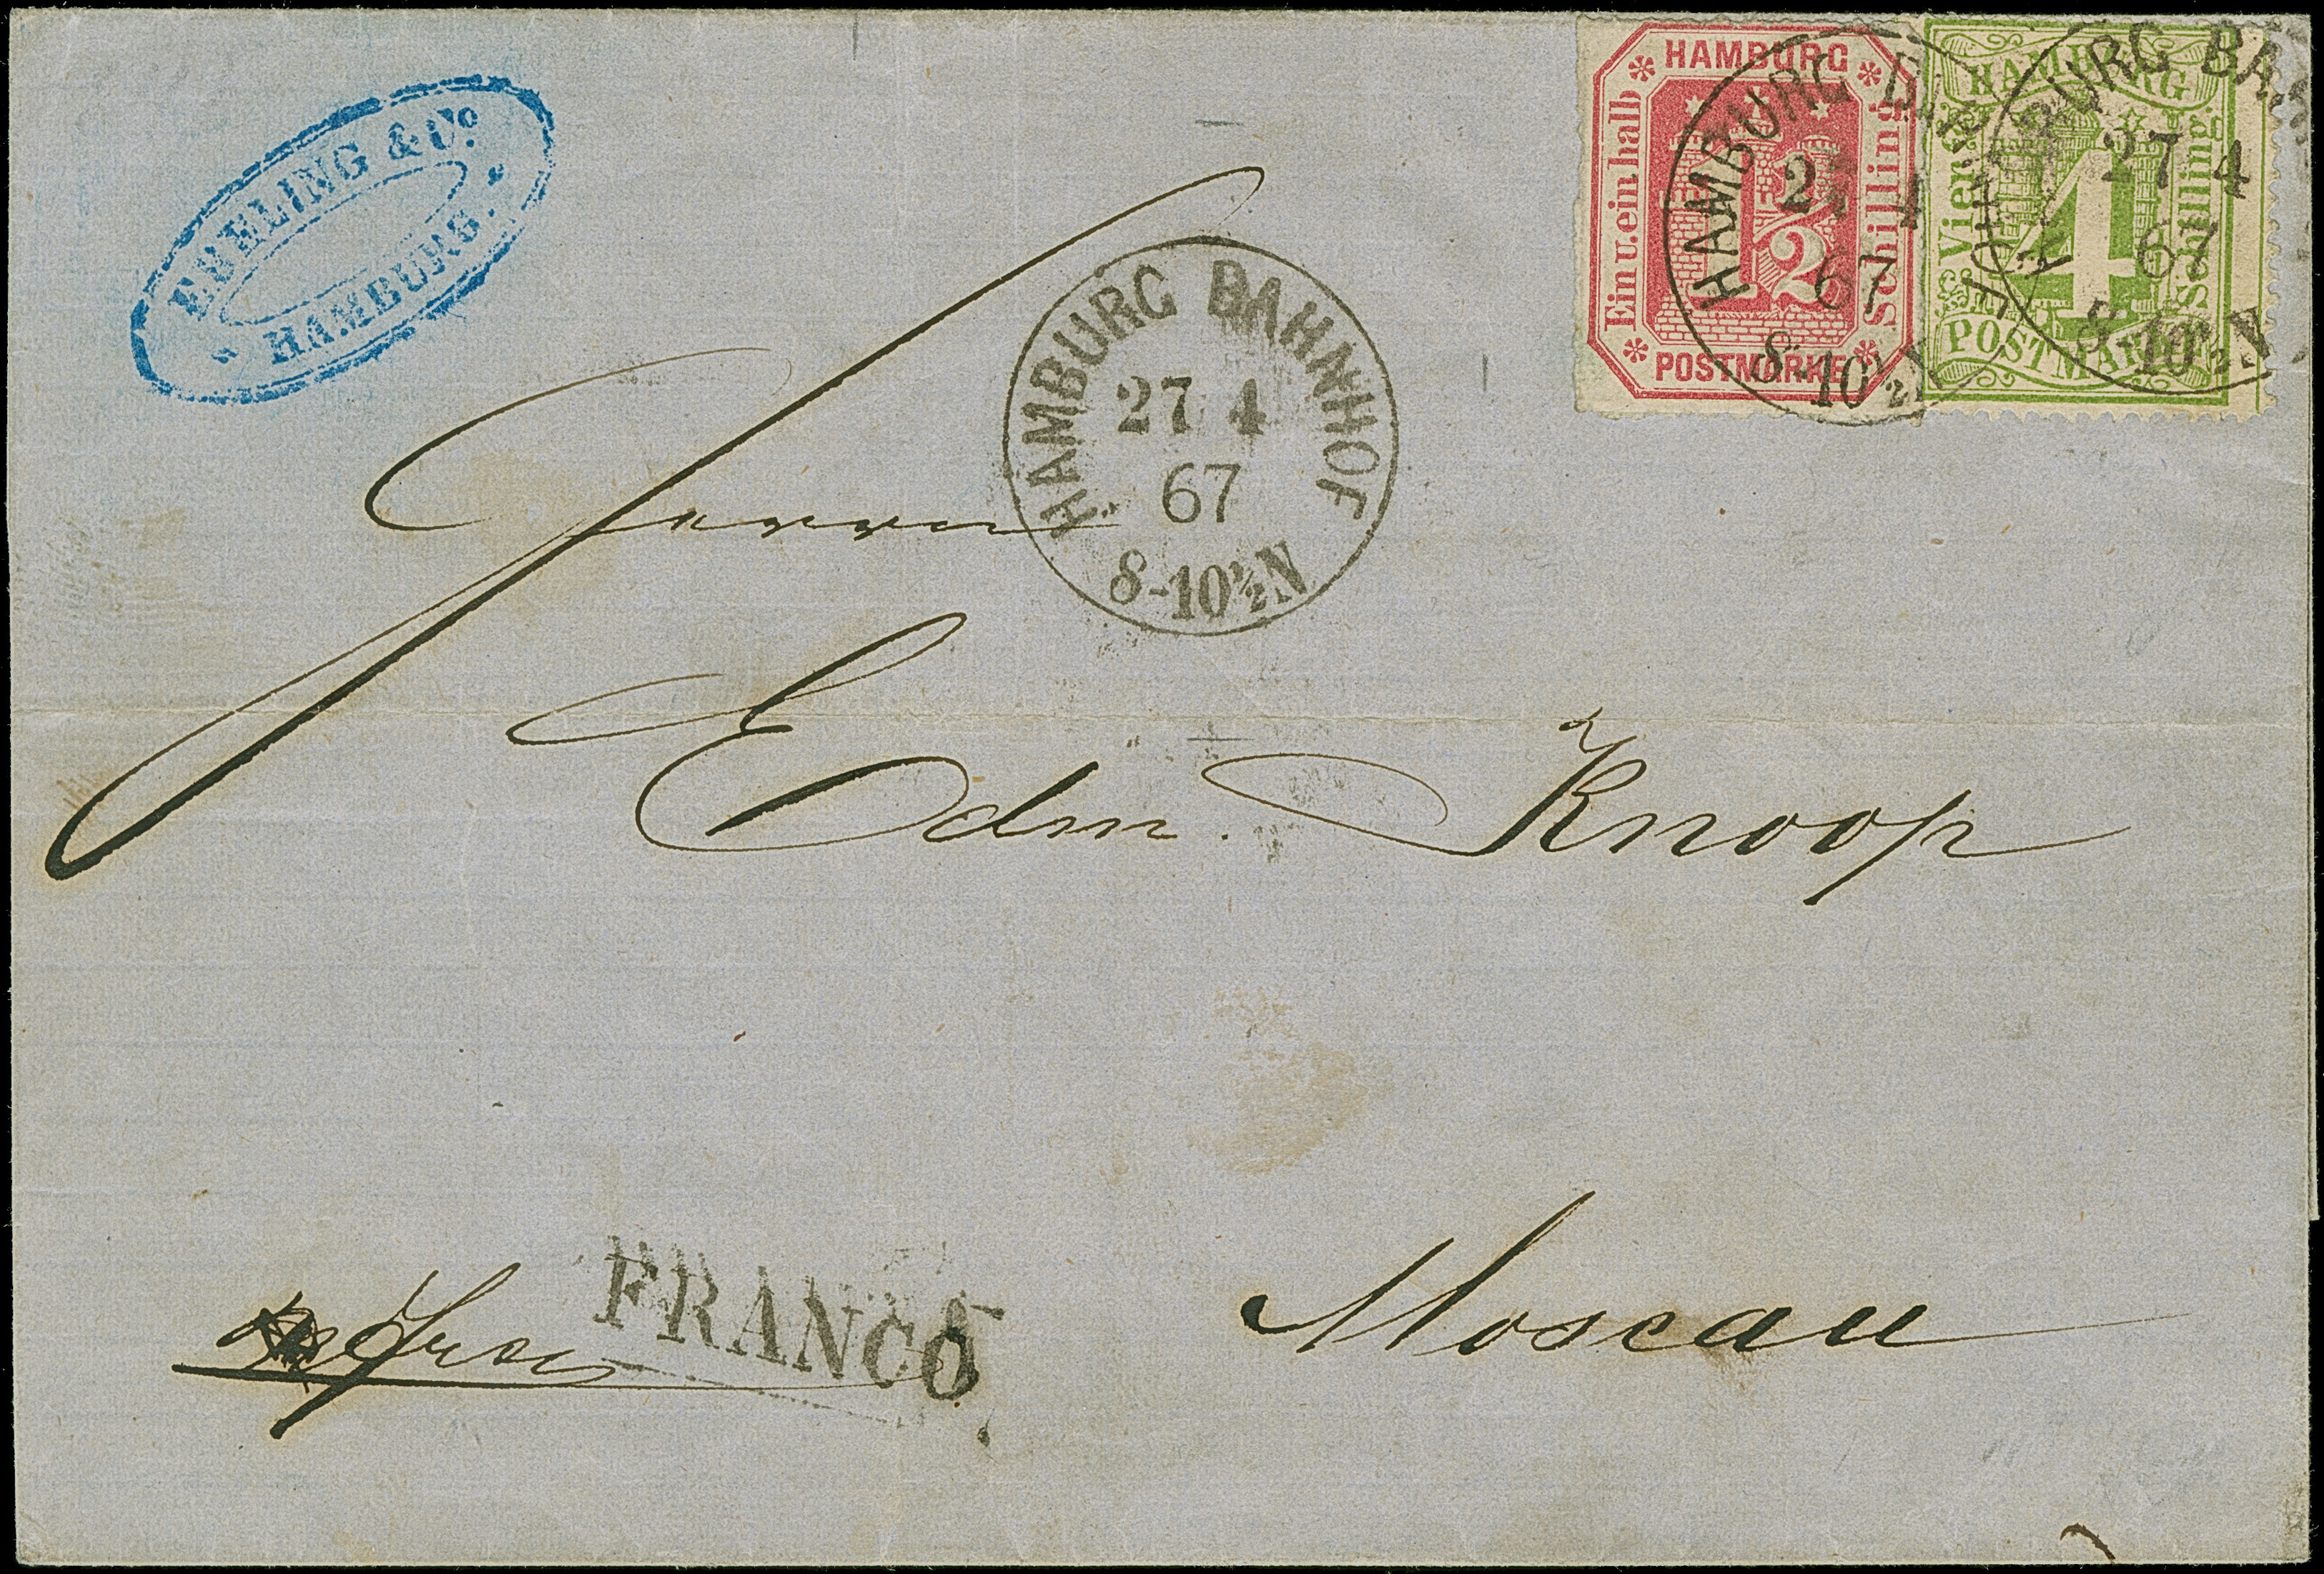 EBELING & Co.
HAMBURG.
HAMBURG
Ein u. ein halb
1 1/2
Schilling
POSTMARKE
HAMBURG BAHNHOF
27 4
67
8-10½N
HAMBURG
Vier
4
Schilling
POSTMARKE
HAMBURG BA
27 4
67
8-10½N
HAMBURG BAHNHOF
27 4
67
8-10½N
Herrn
Edm. Knoop
Moscau
FRANCO